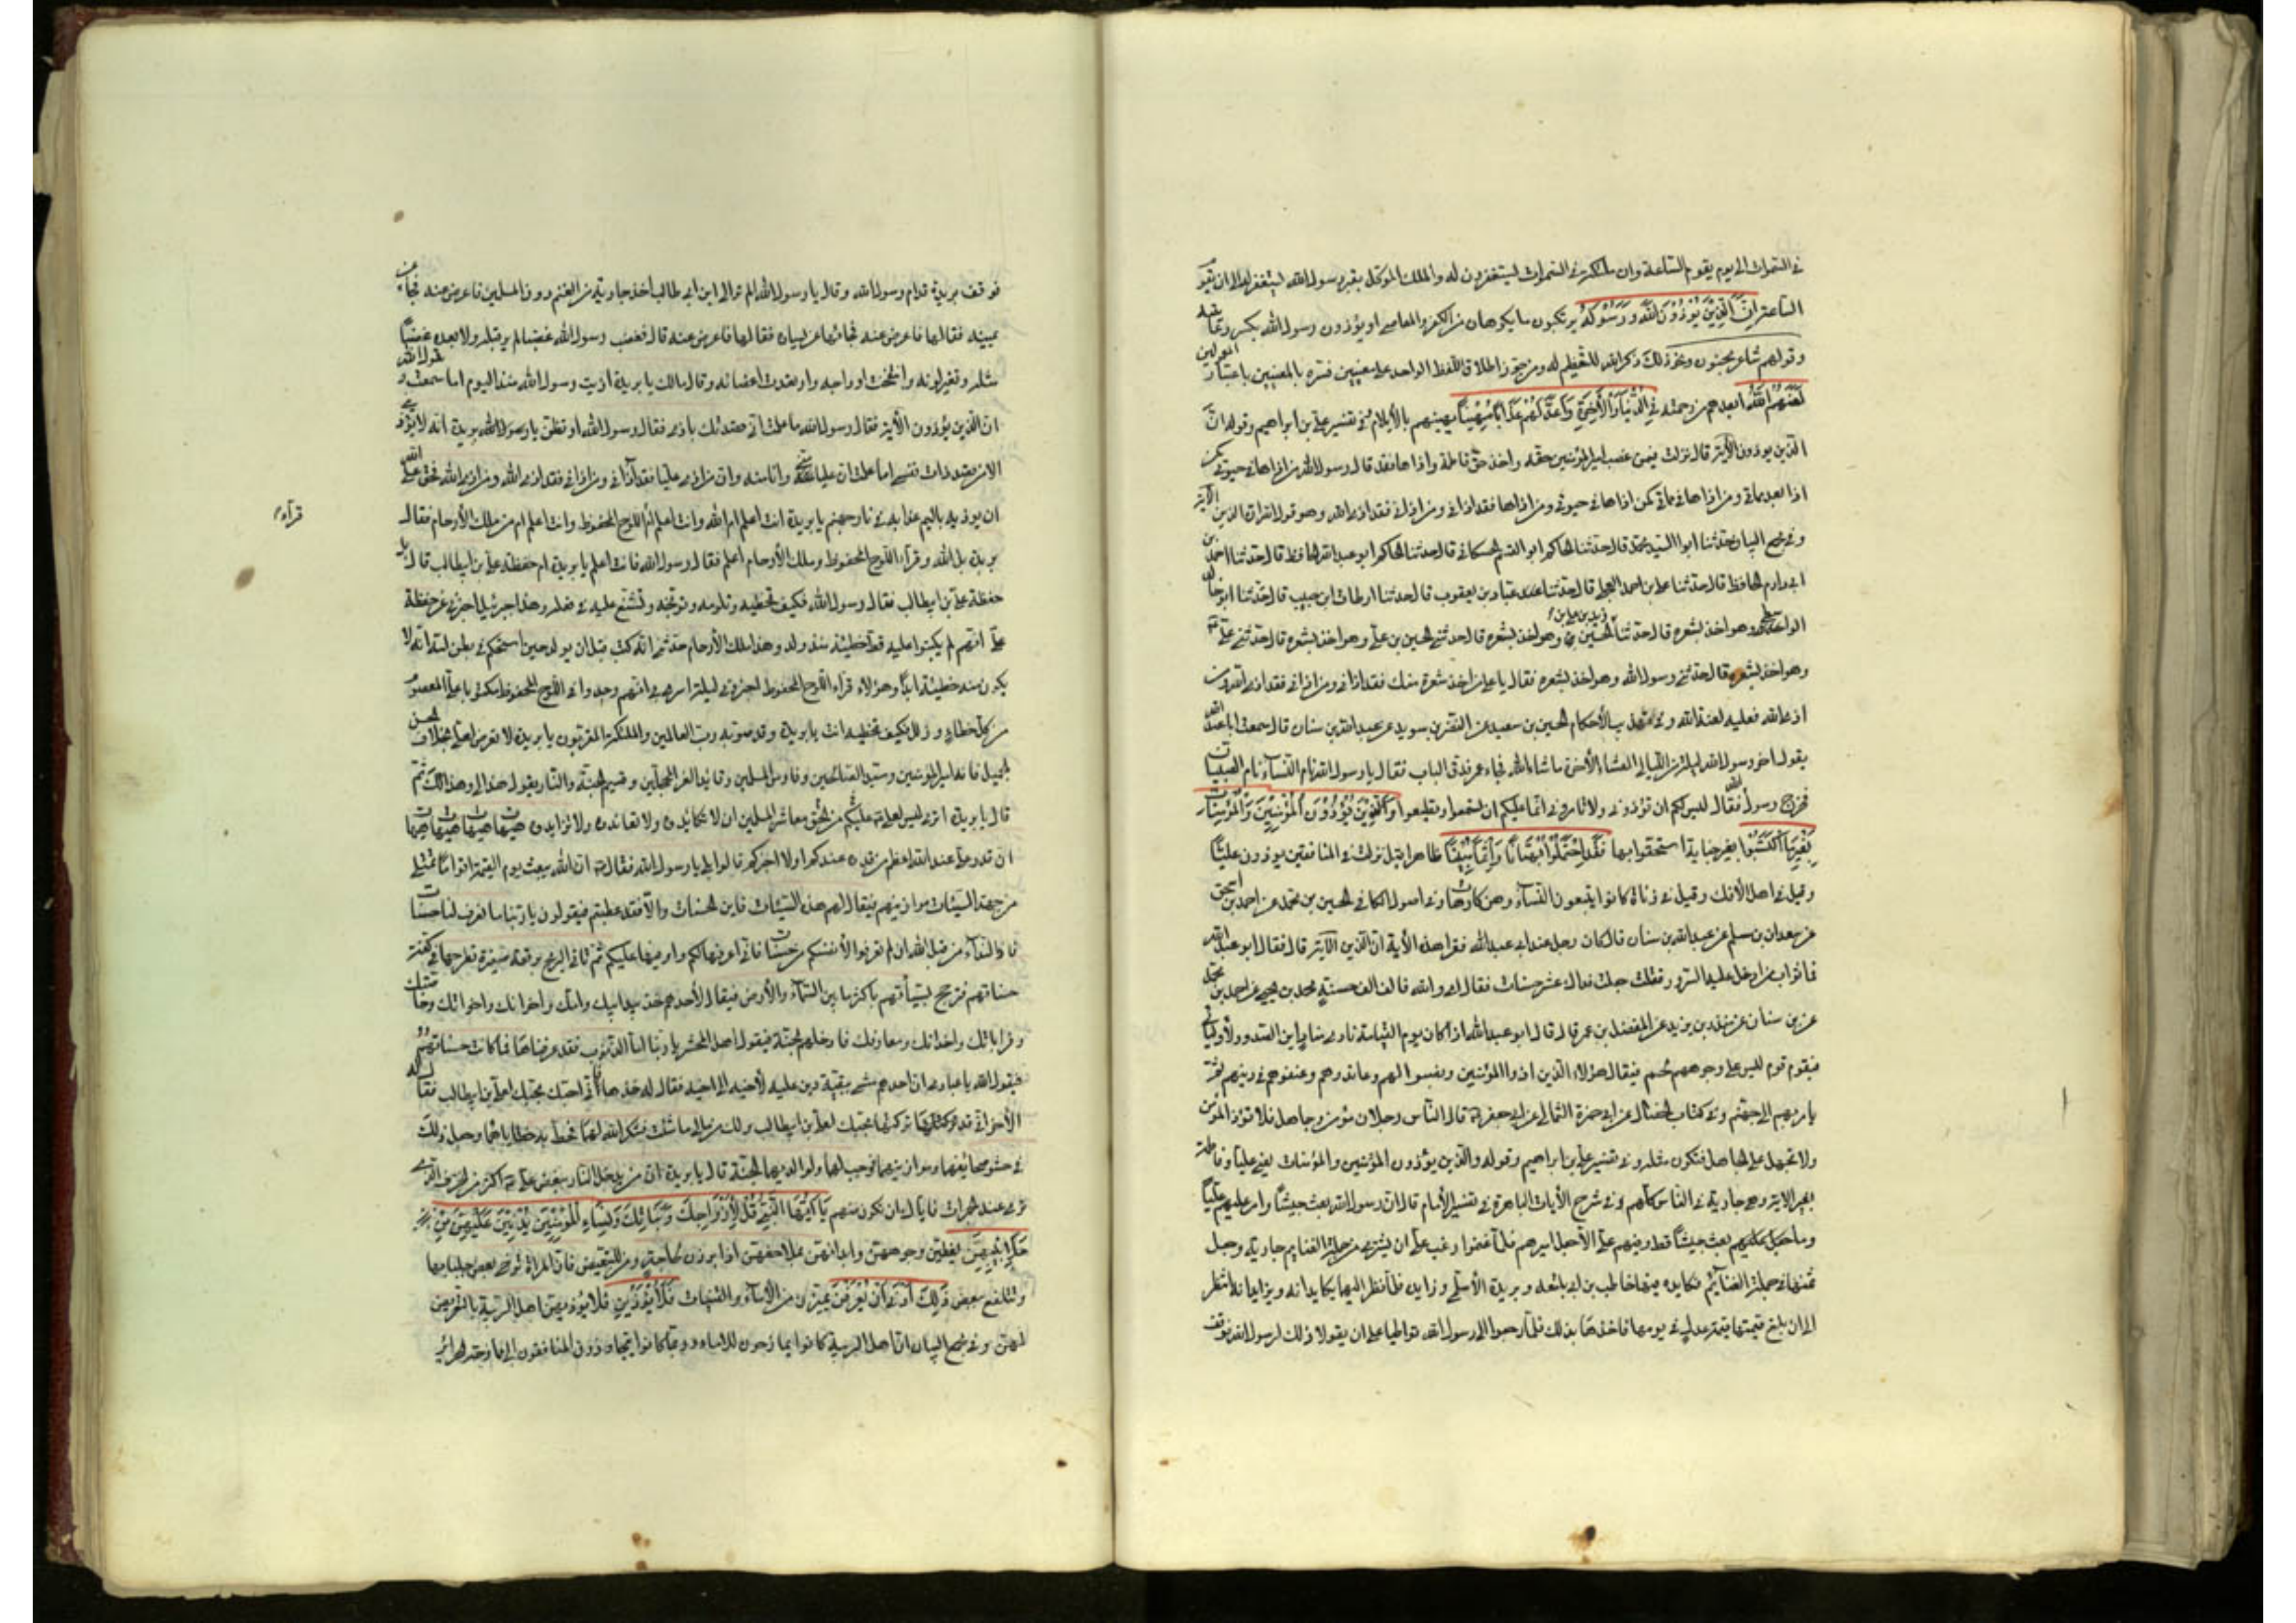 في السموات الى يوم يقوم الساعة وان ملائكة السموات ليستغفرون له والملك الموكل بقبر رسول الله ليستغفر له الى ان تقوم
الساعة ان الذين يؤذون الله ورسوله يرتكبون ما يكرهانه من الكفر والمعاصي او يؤذون رسول الله بكسر رباعيته
وقولهم شاعر مجنون ونحو ذلك وذكر الله للتعظيم له ومن جوز اطلاق اللفظ الواحد على معنيين فسره بالمعنيين باعتبار المعمولين
لعنهم الله ابعدهم من رحمته في الدنيا والآخرة واعد لهم عذابا مهينا يهينهم بالايلام في تفسير علي بن ابراهيم وقوله ان
الذين يؤذون الآية قال نزلت فيمن غصب امير المؤمنين حقه واخذ حق فاطمة واذاها فقد قال رسول الله من اذاها في حيوتي كمن
اذاها بعد مماتي ومن اذاها في مماتي كمن اذاها في حيوتي ومن اذاها فقد اذاني ومن اذاني فقد اذى الله وهو قول الله ان الذين الآية
وفي مجمع البيان حدثنا ابوا السيد محمد قال حدثنا الحاكم ابو القسم الحسكاني قال حدثنا الحاكم ابو عبد الله الحافظ قال حدثنا احمد بن
ابي دارم الحافظ قال حدثنا علي بن احمد العجلي قال حدثنا عباد بن يعقوب قال حدثنا ارطاة بن حبيب قال حدثنا ابو خالد
الواسطي وهو اخذ بشعره قال حدثنا زيد بن علي بن الحسين وهو اخذ بشعره قال حدثني الحسين بن علي وهو اخذ بشعره قال حدثني علي
وهو اخذ بشعره قال حدثني رسول الله وهو اخذ بشعره فقال يا علي من اخذ شعرة منك فقد اذاني ومن اذاني فقد اذى الله ومن
اذى الله فعليه لعنة الله وفي تهذيب الاحكام الحسين بن سعيد عن النضر بن سويد عن عبد الله بن سنان قال سمعت ابا عبد الله
يقول اخر رسول الله ليلة من الليالي العشاء الآخرة ما شاء الله فجاء عمر فدق الباب فقال يا رسول الله نام النساء نام الصبيان
فخرج رسول الله فقال ليس لكم ان تؤذوني ولا تامروني انما عليكم ان تسمعوا وتطيعوا والذين يؤذون المؤمنين والمؤمنات
بغير ما اكتسبوا بغير جناية استحقوا بها فقد احتملوا بهتانا واثما مبينا ظاهرا قيل نزلت في المنافقين يؤذون عليا
وقيل في اهل الافك وقيل في زناة كانوا يتبعون النساء وهن كارهات وفي اصول الكافي الحسين بن محمد عن احمد بن اسحق
عن سعدان بن مسلم عن عبد الله بن سنان قال كان رجل عند ابي عبد الله فقرا هذه الآية ان الذين الآية قال فقال ابو عبد الله
فما ثواب من ادخل عليه السرور فقلت جعلت فداك عشر حسنات فقال اي والله فالف الف حسنة محمد بن يحيى عن احمد بن محمد
عن بن سنان عن منذر بن يزيد عن المفضل بن عمر قال قال ابو عبد الله اذا كان يوم القيامة نادى مناد اين الصدود لأوليائي
فيقوم قوم ليس على وجوههم لحم فيقال هؤلاء الذين اذوا المؤمنين ونصبوا لهم وعاندوهم وعنفوهم في دينهم ثم
يامر بهم الى جهنم وفي كتاب الخصال عن ابي حمزة الثمالي عن ابي جعفر قال الناس رجلان مؤمن وجاهل فلا تؤذ المؤمن
ولا تجهل على الجاهل فتكون مثله وفي تفسير علي بن ابراهيم وقوله والذين يؤذون المؤمنين والمؤمنات يعني عليا وفاطمة
وهي جارية في الناس كلهم وفي شرح الآيات الباهرة في تفسير الامام قال ان رسول الله بعث جيشا وامر عليهم عليا
وما بعث جيشا قط وفيهم علي الا جعل اميرهم فلما غنموا رغب علي ان يشتري من جملة الغنايم جارية وجعل
ثمنها في جملة الغنايم فكايده فيها حاطب بن ابي بلتعه وبريدة الاسلمي وزايداه فلما نظر اليهما يكايدانه ويزايدانه انتظر
الى ان بلغ قيمتها قيمة عدل في يومها فاخذها بذلك فلما رجعوا الى رسول الله تواطيا على ان يقولا ذلك لرسول الله فوقف
فوقف بريدة قدام رسول الله وقال يا رسول الله الم تر الى ابن ابي طالب اخذ جارية من المغنم دون المسلمين فاعرض عنه فجاء عن
يمينه فقالها فاعرض عنه فجائها عن يساره فقالها فاعرض عنه قال فغضب رسول الله غضبا لم ير قبله ولا بعده غضبا
مثله وتغير لونه وانتفخت اوداجه وارتعدت اعضائه وقال مالك يا بريدة اذيت رسول الله منذ اليوم اما سمعت قول الله
ان الذين يؤذون الآية فقال رسول الله ما علمت اني قصدتك باذى فقال رسول الله او تظن يا بريدة انه لا يؤذيني
الا من قصد ذات نفسي اما علمت ان عليا مني وانا منه وان من اذى عليا فقد آذاني ومن اذاني فقد اذى الله ومن اذى الله فحق على الله
ان يؤذيه باليم عذابه في نار جهنم يا بريدة انت اعلم ام الله وانت اعلم ام اللوح المحفوظ وانت اعلم ام ملك الارحام فقال
بريدة بل الله وقرآء اللوح المحفوظ وملك الارحام اعلم فقال رسول الله فانت اعلم يا بريدة ام حفظة علي بن ابي طالب قال بل
حفظة علي بن ابي طالب فقال رسول الله فكيف تخطيه وتلومه وتوبخه وتشنع عليه في فعله وهذا جبرئيل اخبرني عن حفظة
علي انهم لم يكتبوا عليه قط خطيئة منذ ولد وهذا ملك الارحام حدثني انه كتب قبل ان يولد حين استحكم في بطن امه انه لا
يكون منه خطيئة ابدا وهؤلاء قراء اللوح المحفوظ اخبروني ليلة اسري بي انهم وجدوا في اللوح المحفوظ مكتوبا علي المعصوم
من كل خطاء وزلل فكيف تخطيه انت يا بريدة وقد صوبه رب العالمين والملئكة المقربون يا بريدة لا تعرض لعلي بخلاف الحسن
الجميل فانه امير المؤمنين وسيد الصالحين وفارس المسلمين وقائد الغر المحجلين وقسيم الجنة والنار يقول هذا لي وهذا لك ثم
قال يا بريدة اترى ليس لعلي عليكم من الحق معاشر المسلمين ان لا تكايدوه ولا تعاندوه ولا تزايدوه هيهات هيهات هيهات هيهات
ان قدر علي عند الله اعظم من قدره عندكم اولا اخبركم قالوا بلى يا رسول الله فقال ان الله يبعث يوم القيمة اقواما تمتلي
من جهة السيئات موازينهم فيقال لهم هذه السيئات فاين الحسنات والا فقد عطبتم فيقولون يا ربنا ما نعرف لنا حسنات
فاذا النداء من قبل الله ان لم تعرفوا لانفسكم حسنات فاني اعرفها لكم واوفيها عليكم ثم تاتي الريح برقعة صغيرة تطرحها في كفة
حسناتهم فترجح بسيآتهم باكثر ما بين السماء والارض فيقال لأحدهم خذ بيد ابيك وامك واخوانك واخواتك وخاصتك
وقراباتك واخدانك ومعارفك فادخلهم الجنة فيقول اهل المحشر يا ربنا اما الذنوب فقد عرفناها فما كانت حسناتهم
فيقول الله يا عبادي ان احدهم مشى ببقية دين عليه لأخيه الى اخيه فقال له خذها فاني احبك بحبك لعلي بن ابي طالب فقال له
الاخر اني قد تركتها لك بحبك لعلي بن ابي طالب ولك من مالي ما شئت فشكر الله لهما فحط به خطاياهما وجعل ذلك
في حشو صحائفهما وموازينهما واوجب لهما ولوالديهما الجنة قال يا بريدة ان من يدخل النار ببغض علي اكثر من الخزف الذي
ترمى عند الجمرات فاياك ان تكون منهم يا ايها النبي قل لازواجك وبناتك ونساء المؤمنين يدنين عليهن من
جلابيبهن يغطين وجوههن وابدانهن بملاحفهن اذا برزن لحاجة ومن للتبعيض فان المراة ترخي بعض جلبابها
وتتلفع ببعض ذلك ادنى ان يعرفن يميزن من الاماء والقينات فلا يؤذين فلا يؤذيهن اهل الريبة بالتعرض
لهن وفي مجمع البيان ان اهل الريبة كانوا يمازحون الاماء وربما كانوا يتجاوزون المنافقون الى ممازحة الحرائر
قرآء